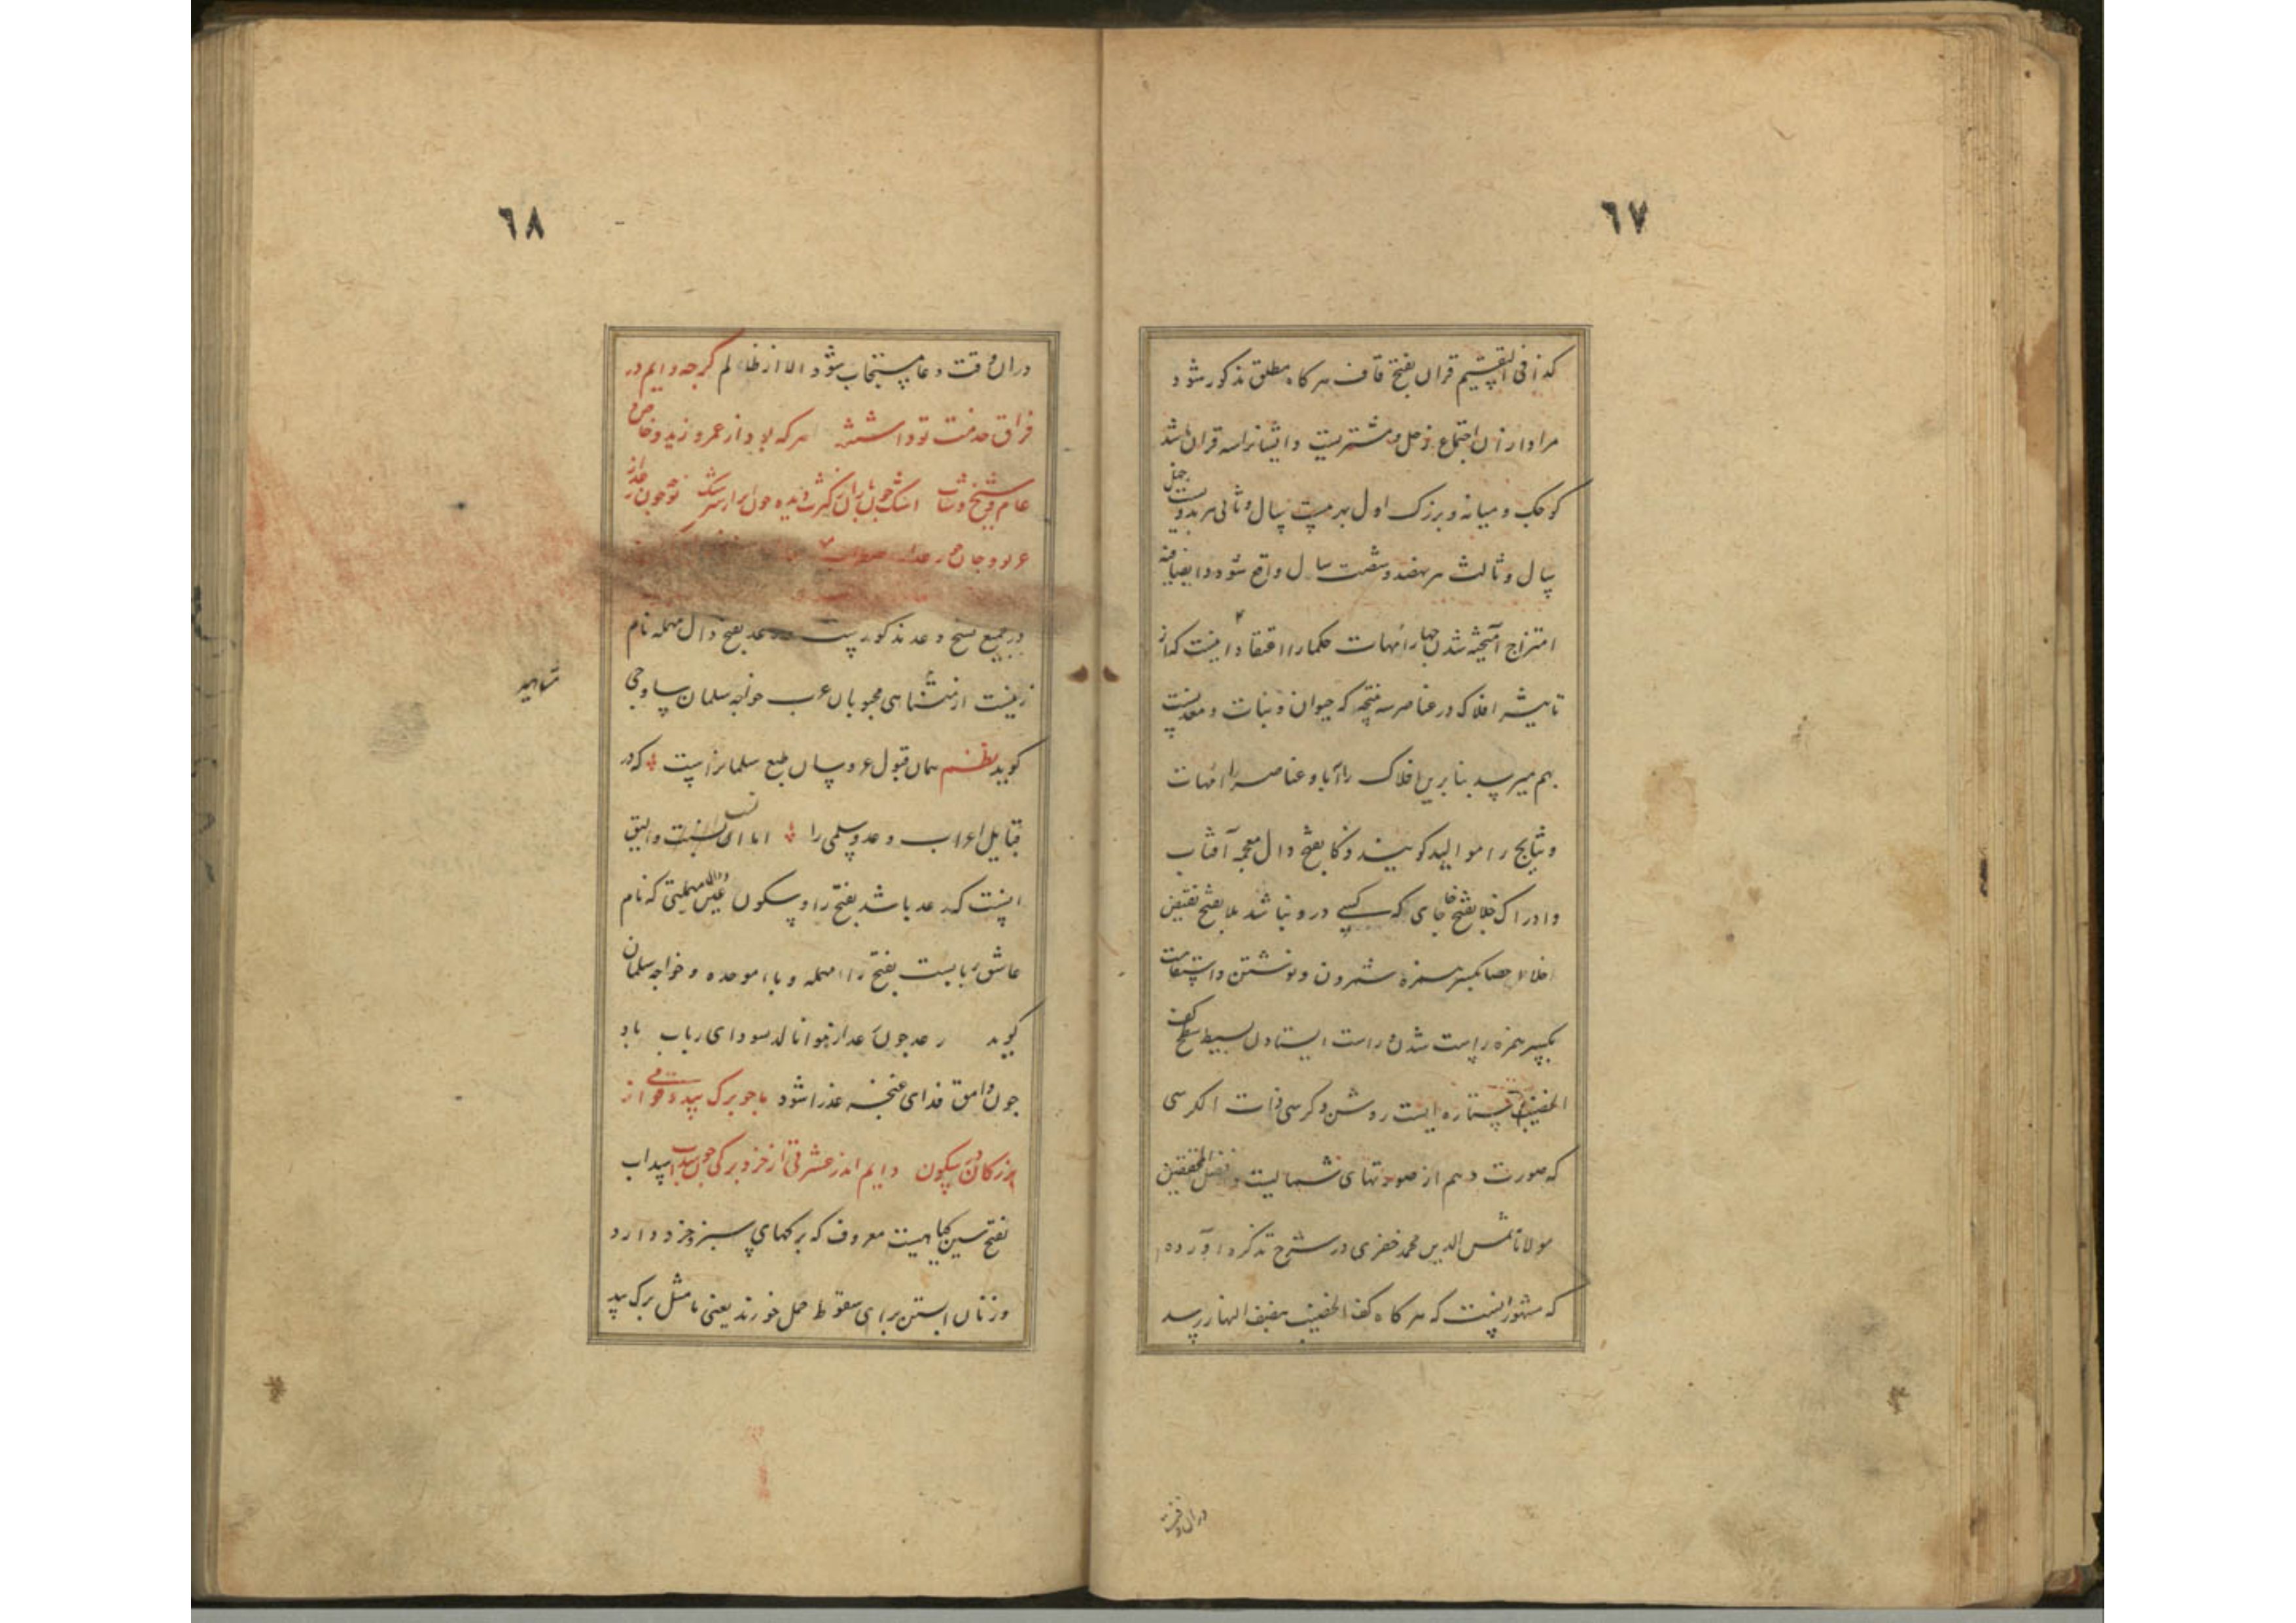 ٦٧
كذا فی التقسیم قران بفتح قاف هر كاه مطلق مذكور شود
مراد ازان اجتماع زحل و مشتریست و ایشانرا سه قران باشد
كوچك و میانه و بزرك اول هر بیست سال و ثانی هر بدویست و چهل
سال و ثالث هر نهصد و شصت سال واقع شود
امتزاج آمیخته شدن چهار امهات حكما را اعتقاد اینست كه از
تاثیر افلاك در عناصر سه نتیجه كه حیوان و نبات و معدنست
بهم میرسد بنا برین افلاك را آبا و عناصر را امهات
و نتایج را موالید كویند ذكا بفتح ذال معجمه آفتاب
و ادراك خلا بفتح خا جای كه كسی درو نباشد ملا بفتح نقیض
خلا احصا بكسر همزه شمردن و نوشتن و استقامت
بكسر همزه راست شدن و راست ایستادن بسیط سطح كف
الخضیب ستاره ایست روشن و كرسی ذات الكرسی
كه صورت دهم از صورتهای شمالیست و افضل المحققین
مولانا شمس الدین محمد خفری در شرح تذكره آورده
كه مشهور اینست كه هر كاه كف الخضیب بنصف النهار رسد
دران وقت
٦٨
دران وقت دعا مستجاب شود الا از ظالم كرچه دایم در
فراق خدمت تو داشتند هر كه بود از عمرو و زید و خاص و
عام و شیخ و شاب اشك چون باران ز كثرت دیده چون ابر از سرشك
در جمیع نسخ وعد مذكور است وعد بفتح دال مهمله نام
زنیست از مشاهیر محبوبان عرب خواجه سلمان ساوجی
كوید نظم همان قبول عروسان طبع سلمانراست كه در
قبایل اعراب وعد و سلمی را اما انسب و الیق
اینست كه رعد باشد بفتح را و سكون عین و دال مهملتین كه نام
عاشق ربابست بفتح راء مهمله و باء موحده و خواجه سلمان
كوید رعد چون عد از هوا نالد سودای رباب باد
چون وامق فدای غنچه عذرا شود باجو برك بید
بزركان دایم اندر عشرتی از خرد بركی چون سداب سداب
بفتح سین كیاهیست معروف كه بركهای سبز و خرد دارد
و زنان ابستن برای سقوط حمل خورند یعنی ما مثل برك بید
مشاهیر